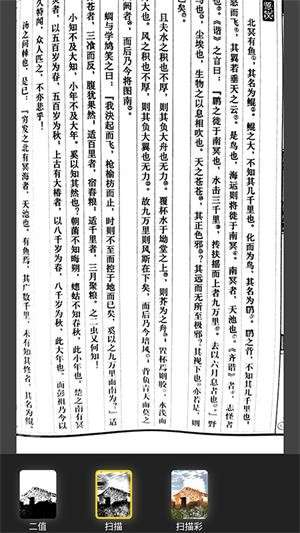 北冥有鱼，其名为鲲。鲲之大，不知其几千里也。化而为鸟，其名为鹏。鹏之背，不知其几千里也，
怒而飞，其翼若垂天之云。是鸟也，海运则将徙于南冥。南冥者，天池也。《齐谐》者，志怪者
也。《谐》之言曰：“鹏之徙于南冥也，水击三千里，抟扶摇而上者九万里，去以六月息者也。”野
马也，尘埃也，生物之以息相吹也。天之苍苍，其正色邪？其远而无所至极邪？其视下也，亦若是，则
且夫水之积也不厚，则其负大舟也无力。覆杯水于坳堂之上，则芥为之舟，置杯焉则胶，水浅而
大也。风之积也不厚，则其负大翼也无力。故九万里则风斯在下矣，而后乃今培风；背负青天而莫之
阏者，而后乃今将图南。
蜩与学鸠笑之曰：“我决起而飞，枪榆枋而止，时则不至而控于地而已矣，奚以之九万里而南为？”适
苍者，三飡而反，腹犹果然，适百里者，宿舂粮，适千里者，三月聚粮。之二虫又何知！
小知不及大知，小年不及大年。奚以知其然也？朝菌不知晦朔，蟪蛄不知春秋，此小年也。楚之南有冥
者，以五百岁为春，五百岁为秋，上古有大椿者，以八千岁为春，八千岁为秋，此大年也。而彭祖乃今以
久特闻，众人匹之，不亦悲乎！
汤之问棘也，是已：“穷发之北有冥海者，天池也。有鱼焉，其广数千里，未有知其修者，其名为鲲。
二值
扫描
扫描彩